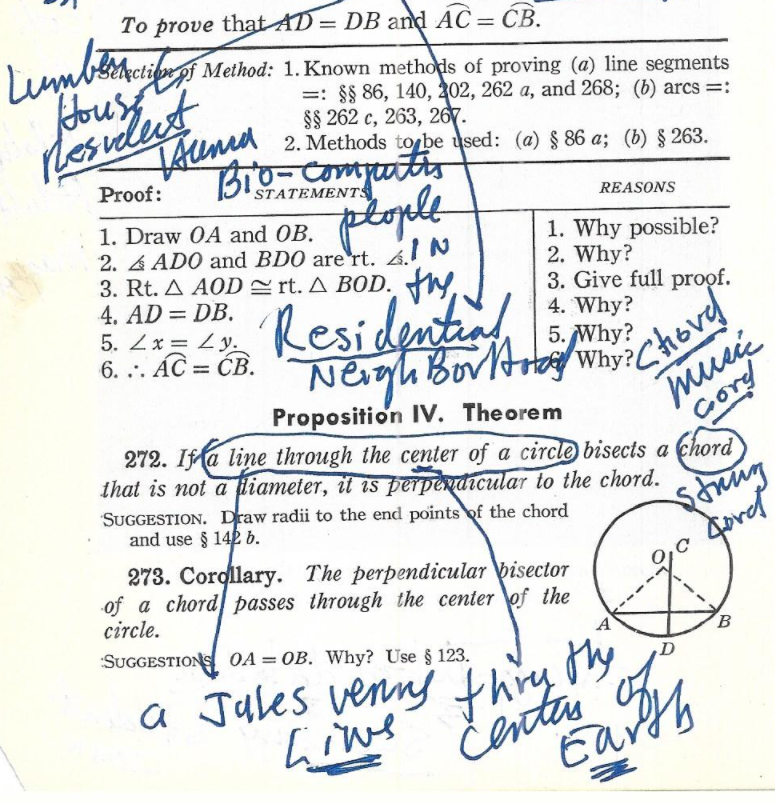 To prove that AD = DB and A͡C = C͡B.
Selection of Method: 1. Known methods of proving (a) line segments
=: §§ 86, 140, 202, 262 a, and 268; (b) arcs =:
§§ 262 c, 263, 267.
2. Methods to be used: (a) § 86 a; (b) § 263.
Lumber
House
Resident
Human
Bio-Computer
people
IN
the
Residential
NeighBorHood
Proof: STATEMENTS REASONS
1. Draw OA and OB. 1. Why possible?
2. ∡ ADO and BDO are rt. ∡. 2. Why?
3. Rt. △ AOD ≅ rt. △ BOD. 3. Give full proof.
4. AD = DB. 4. Why?
5. ∠x = ∠y. 5. Why?
6. ∴ A͡C = C͡B. 6. Why?
Chord
Music
Cord
Proposition IV. Theorem
272. If a line through the center of a circle bisects a chord
that is not a diameter, it is perpendicular to the chord.
String
Cord
SUGGESTION. Draw radii to the end points of the chord
and use § 142 b.
273. Corollary. The perpendicular bisector
of a chord passes through the center of the
circle.
SUGGESTIONS. OA = OB. Why? Use § 123.
O C
A B
D
a Jules Verne
Line
thru the
Center of
Earth